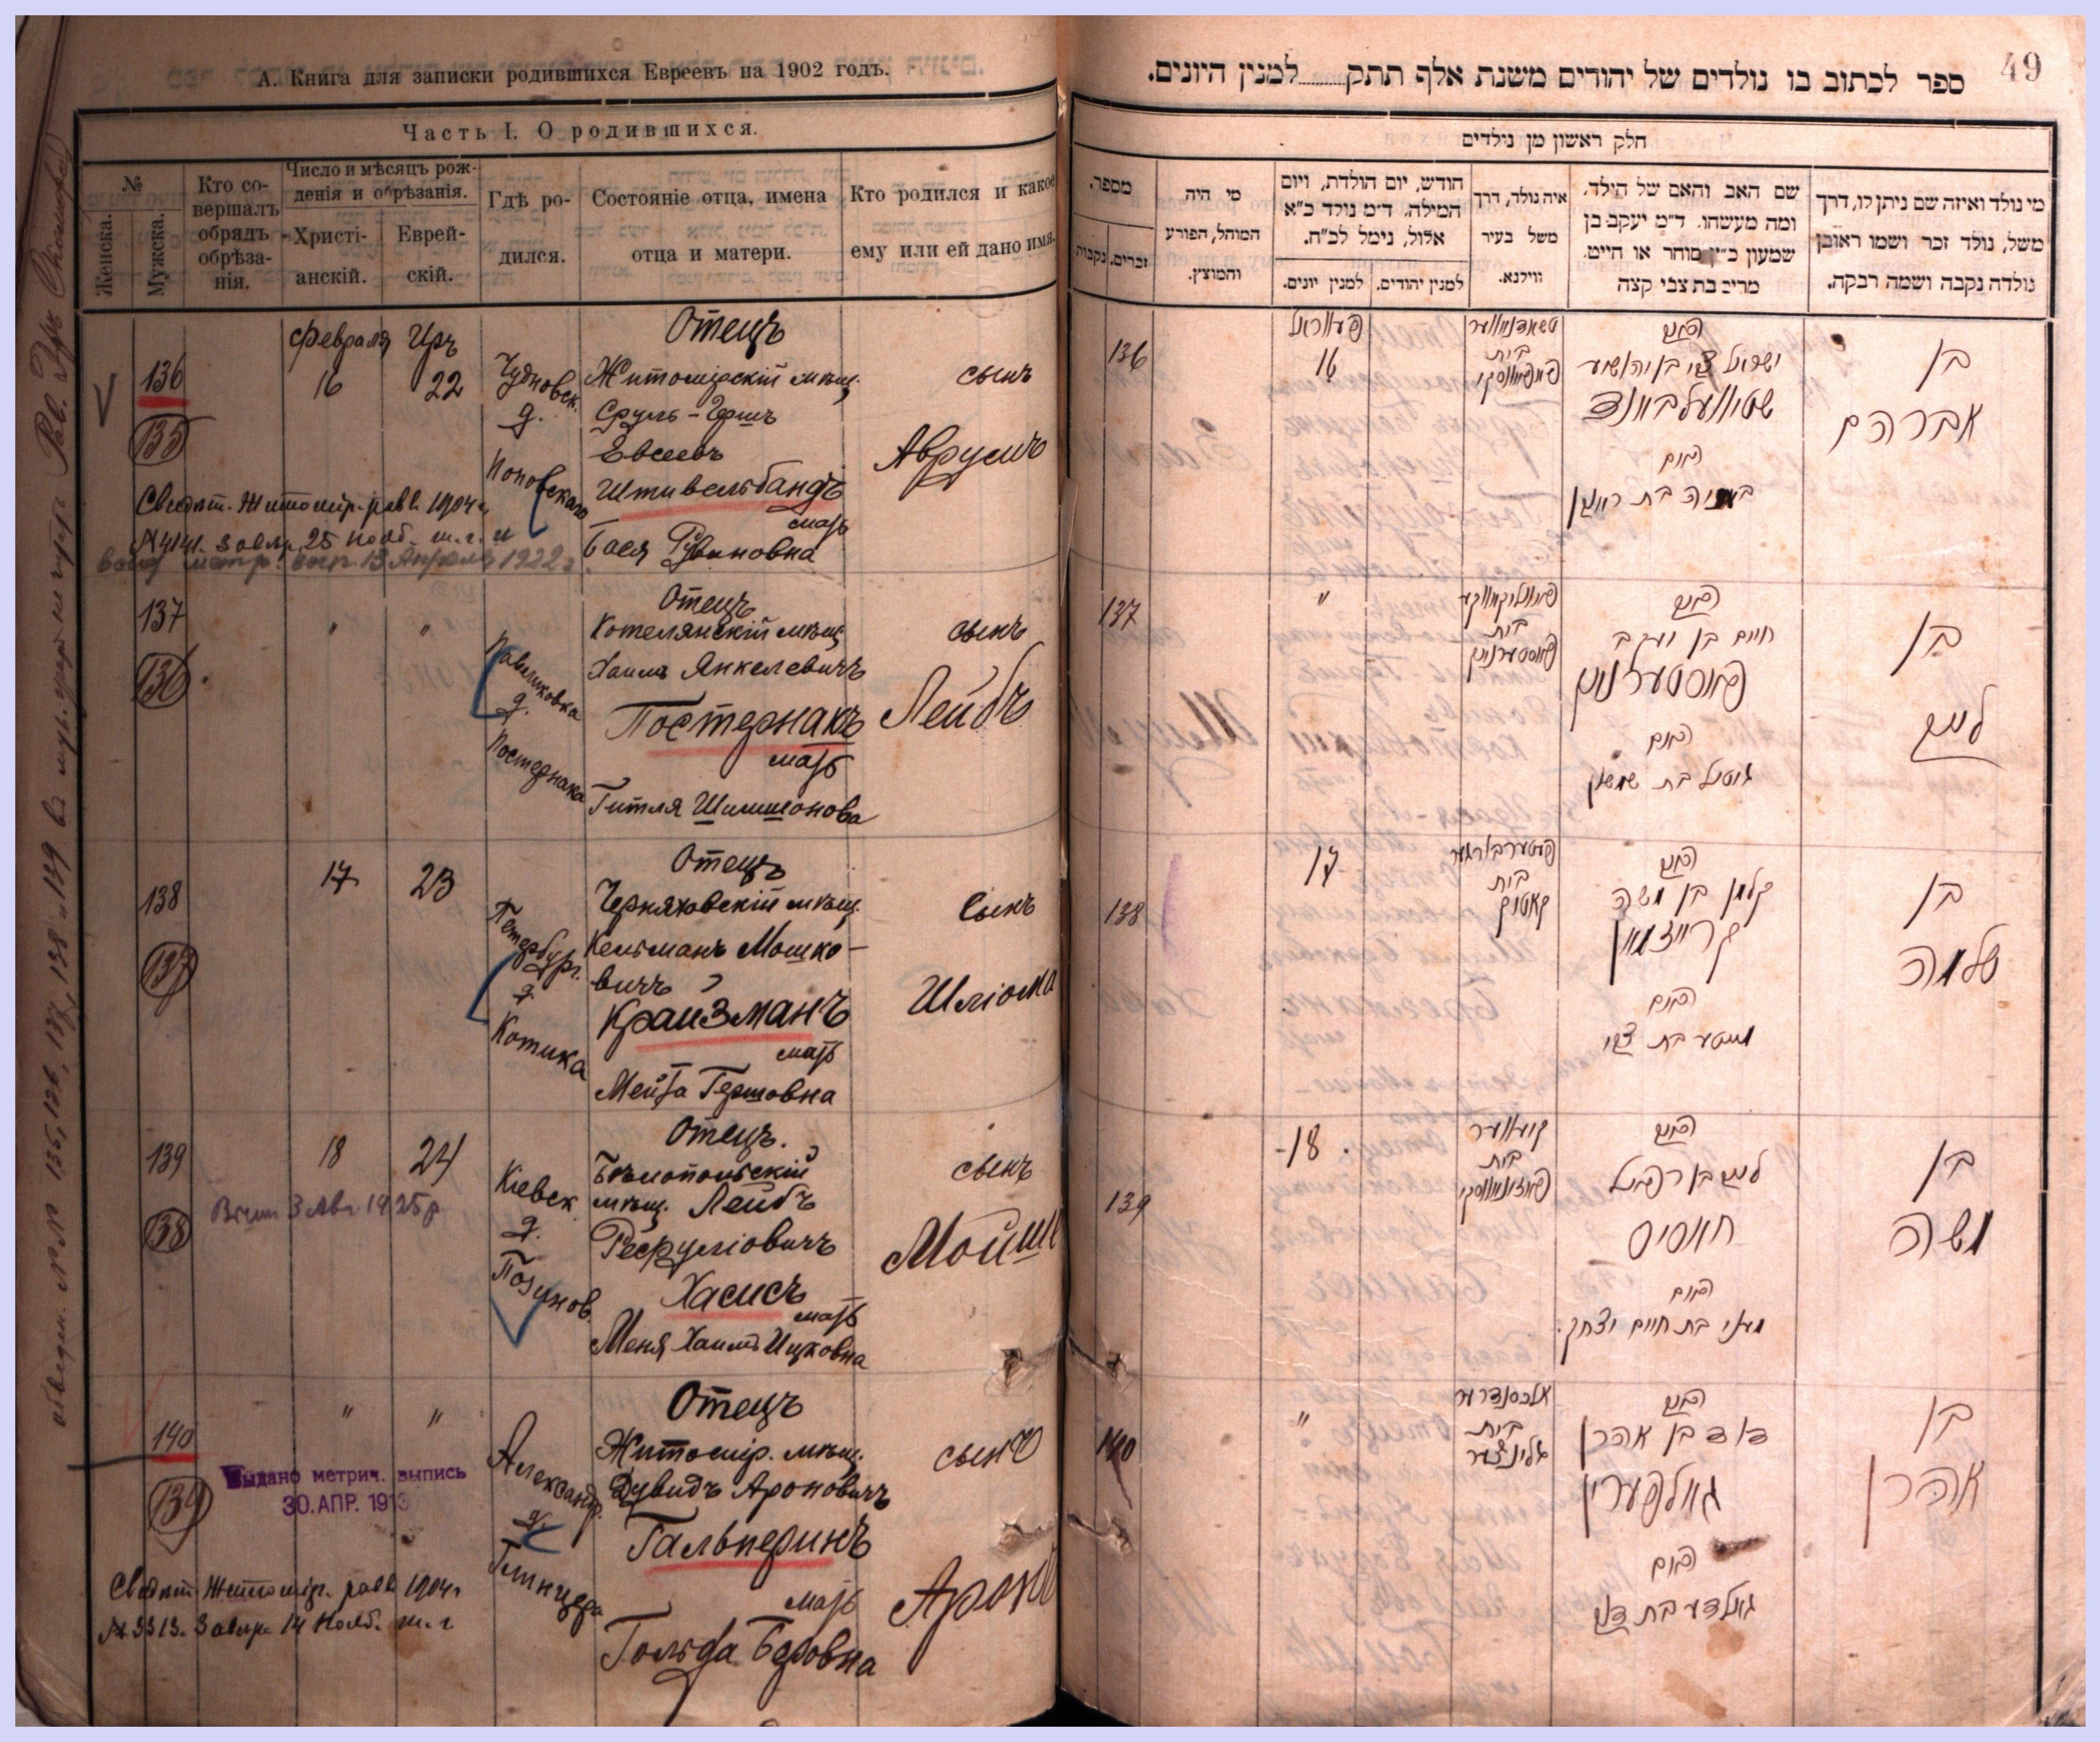 А. Книга для записки родившихся Евреевъ на 1902 годъ.
Часть I. О родившихся.
№
Женска.
Мужска.
Кто со-
вершалъ
обрядъ
обрѣза-
нія.
Число и мѣсяцъ рож-
денія и обрѣзанія.
Христі-
анскій.
Еврей-
скій.
Гдѣ ро-
дился.
Состояніе отца, имена
отца и матери.
Кто родился и какое
ему или ей дано имя.
136
135
Февраля
16
22
Чудновск.
д.
Отецъ
Житомірскій мѣщ.
Сруль-Гершъ
Евсеевъ
Штивельбандъ
мать
Бася Рувиновна
сынъ
Аврумъ
Свидѣт. Житомір. равв. 1904 г.
25 нояб. т. г.
13 Апреля 1922 г.
137
136
"
"
Павликовка
д.
Постернака
Отецъ
Котелянскій мѣщ.
Хаимъ Янкелевичъ
Постернакъ
мать
Гитля Шимшонова
сынъ
Лейбъ
138
137
17
23
Петербург.
д.
Котика
Отецъ
Черняховскій мѣщ.
Кельманъ Мошко-
вичъ
Крайзманъ
мать
Мейта Гершовна
сынъ
Шліома
139
138
18
24
Кіевск
д.
Позинов.
Отецъ.
Бѣлопольскій
мѣщ. Лейбъ
Хасисъ
мать
Меня Хаимъ Ицковна
сынъ
3 Авг 1925 р
140
139
"
"
Александр.
д.
Глинцера
Отецъ
Житомір. мѣщ.
Дувидъ Ароновичъ
Гальперинъ
мать
Гольда Беровна
сынъ
Аронъ
Выдано метрич. выпись
30. АПР. 1913
Свидѣт. Житомір. равв. 1904 г.
№ 3313. 14 нояб. т. г.
49
ספר לכתוב בו נולדים של יהודים משנת אלף תתק........למנין היונים.
חלק ראשון מן נולדים
מספר.
זכרים.
נקבות.
מי היה
המוהל, הפורע
והמוצץ.
חודש, יום הולדת, ויום
המילה. ד״מ נולד כ״א
אלול, נימל לכ״ח.
למנין יהודים.
למנין יונים.
איה נולד, דרך
משל בעיר
ווילנא.
שם האב והאם של הילד.
ומה מעשהו. ד״מ יעקב בן
שמעון כ״ץ סוחר או חייט.
מרים בת צבי קצה
מי נולד ואיזה שם ניתן לו, דרך
משל, נולד זכר ושמו ראובן
נולדה נקבה ושמה רבקה.
136
פעווראל
16
בית
האב
ישראל צבי בן יהושע
שטיוועלבאנד
האם
באסיה בת ראובן
בן
אברהם
137
"
בית
פאסטערנאק
האב
חיים בן יעקב
פאסטערנאק
האם
גיטל בת שמשון
בן
ליב
138
17
פעטערבורגער
בית
קאטיק
האב
קלמן בן משה
קרייזמאן
האם
מייטע בת צבי
בן
שלמה
139
18
קיעווער
בית
האב
ליב בן רפאל
חאסיס
האם
מאני בת חיים יצחק
בן
משה
140
"
אלכסנדרער
בית
גלינצער
האב
דוד בן אהרן
גאלפערין
האם
גאלדע בת דוב
בן
אהרן